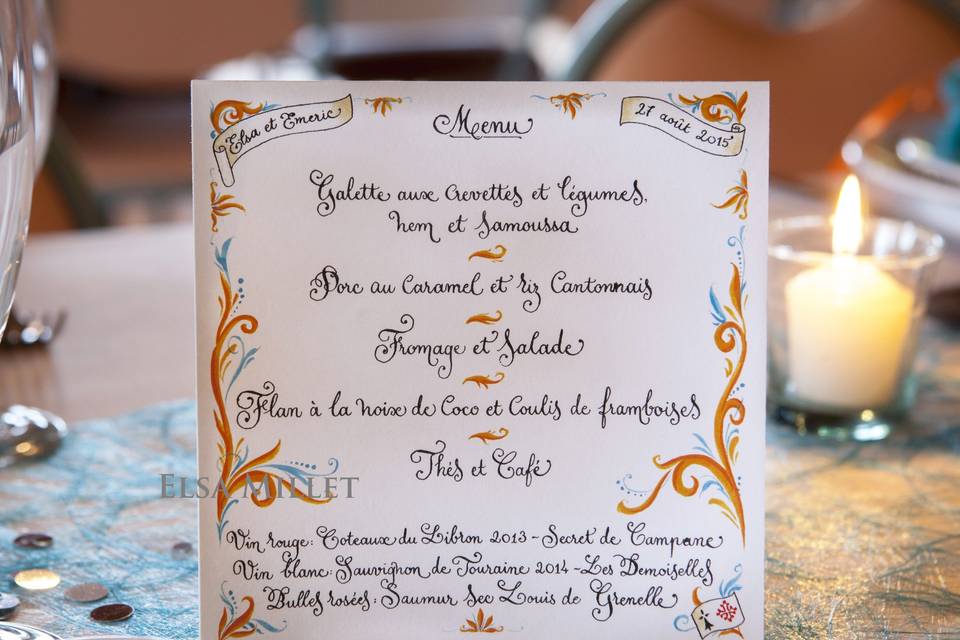 Elsa et Emeric
27 août 2015
Menu
Galette aux Crevettes et légumes,
nem et Samoussa
Porc au Caramel et riz Cantonnais
Fromage et Salade
Flan à la noix de Coco et Coulis de framboises
Thés et Café
ELSA MILLET
Vin rouge: Coteaux du Libron 2013 - Secret de Campane
Vin blanc: Sauvignon de Touraine 2014 - Les Demoiselles
Bulles rosées: Saumur Sec Louis de Grenelle